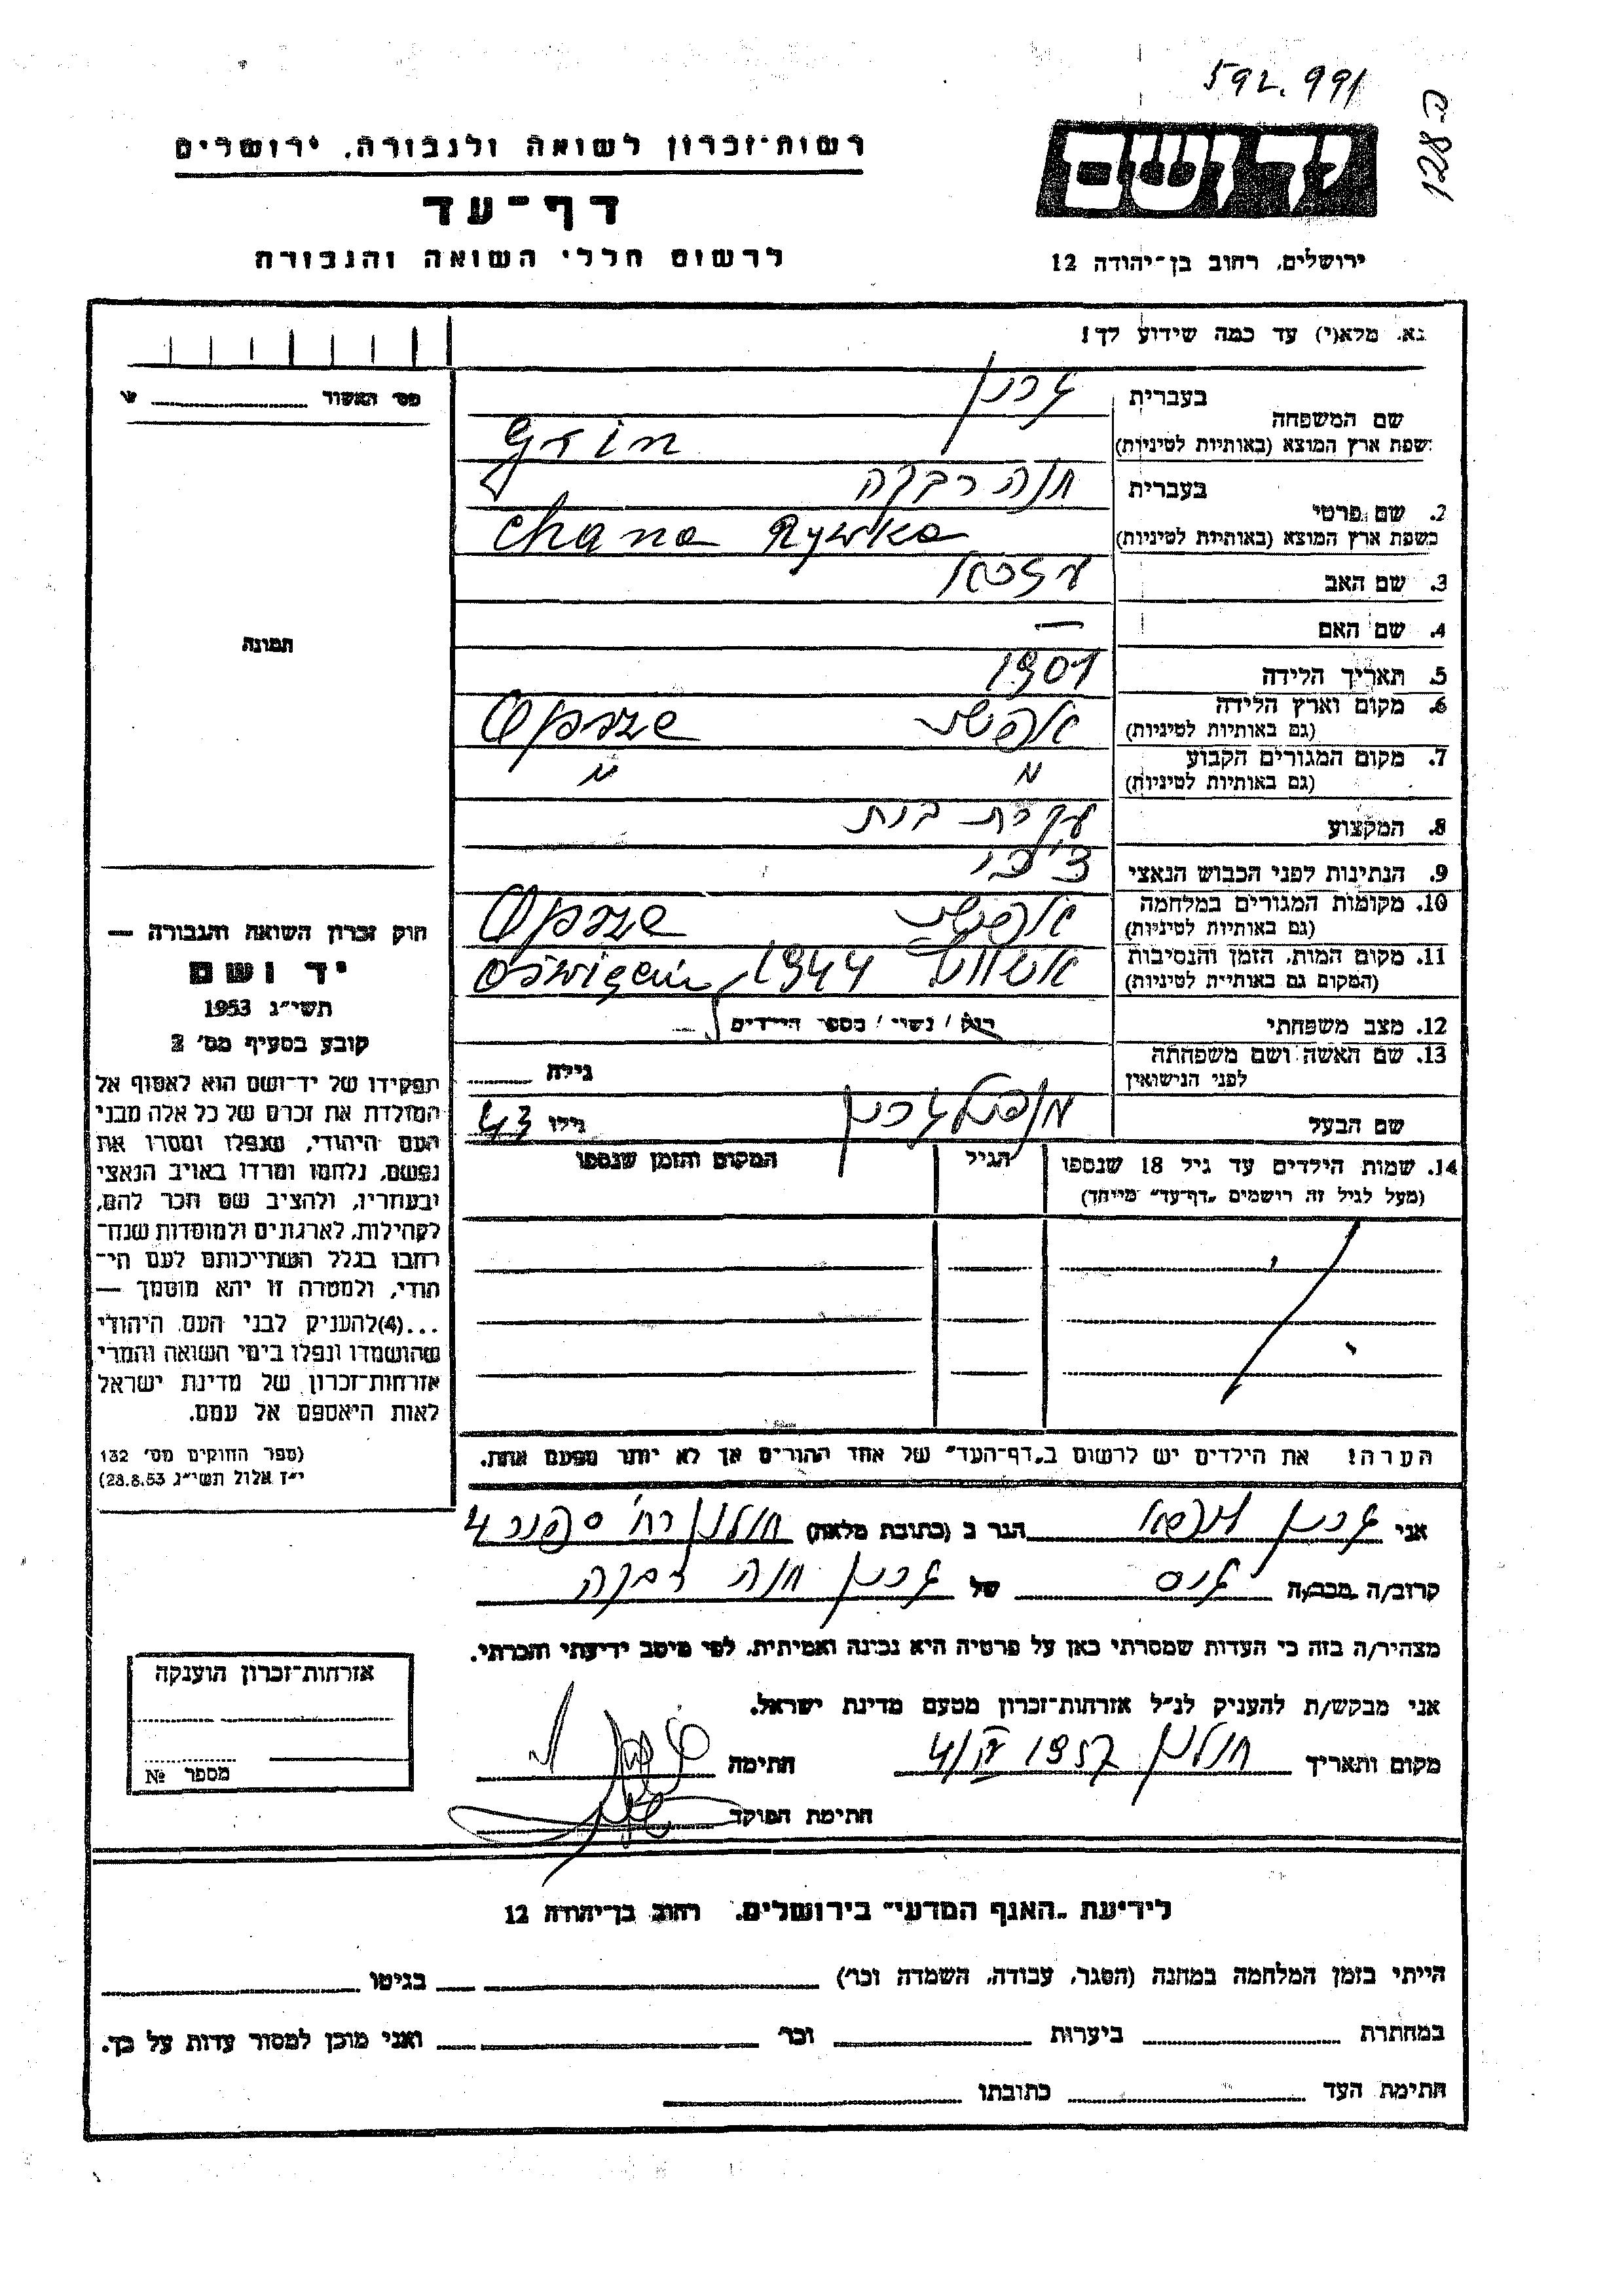 592.991
128 ה
רשות־זכרון לשואה ולגבורה, ירושלים
דף־עד
לרשום חללי השואה והגבורה
יד ושם
ירושלים, רחוב בן־יהודה 12
נא, מלא(י) עד כמה שידוע לך!
מס׳ האשור
תמונה
שם המשפחה
בעברית גרין
בשפת ארץ המוצא (באותיות לטיניות) Grin
2. שם פרטי
בעברית חנה רבקה
בשפת ארץ המוצא (באותיות לטיניות) Chana Rywka
3. שם האב
4. שם האם —
5. תאריך הלידה 1901
6. מקום וארץ הלידה
(גם באותיות לטיניות)
7. מקום המגורים הקבוע
(גם באותיות לטיניות) " "
8. המקצוע עקרת בית
9. הנתינות לפני הכבוש הנאצי
10. מקומות המגורים במלחמה
(גם באותיות לטיניות)
11. מקום המות, הזמן והנסיבות 1944
(המקום גם באותיית לטיניות) Oświęcim
12. מצב משפחתי רוק / נשוי / מספר הילדים
13. שם האשה ושם משפחתה
לפני הנישואין גילה
שם הבעל גרין גילו 43
14. שמות הילדים עד גיל 18 שנספו הגיל המקום והזמן שנספו
(מעל לגיל זה רושמים „דף־עד” מייוחד)
הערה! את הילדים יש לרשום ב„דף־העד” של אחד ההורים אך לא יותר מפעם אחת.
חוק זכרון השואה והגבורה —
יד ושם
תשי״ג 1953
קובע בסעיף מס׳ 2
תפקידו של יד־ושם הוא לאסוף אל
המולדת את זכרם של כל אלה מבני
העם היהודי, שנפלו ומסרו את
נפשם, נלחמו ומרדו באויב הנאצי
ובעוזריו, ולהציב שם וזכר להם,
לקהילות, לארגונים ולמוסדות שנח־
רבו בגלל השתייכותם לעם הי־
הודי, ולמטרה זו יהא מוסמך —
...(4)להעניק לבני העם היהודי
שהושמדו ונפלו בימי השואה והמרי
אזרחות־זכרון של מדינת ישראל
לאות היאספם אל עמם.
(ספר החוקים מס׳ 132
י״ז אלול תשי״ג 28.8.53)
אני גרין הגר ב (כתובת מלאה) חולון רח׳ 4
קרוב/ה מכר/ה גיס של גרין חנה רבקה
מצהיר/ה בזה כי העדות שמסרתי כאן על פרטיה היא נכונה ואמיתית, לפי מיטב ידיעתי והכרתי.
אני מבקש/ת להעניק לנ״ל אזרחות־זכרון מטעם מדינת ישראל.
מקום ותאריך חולון 1957 חתימה
חתימת הפוקד
אזרחות־זכרון הוענקה
מספר №
לידיעת „האגף המדעי” בירושלים, רחוב בן־יהודה 12
הייתי בזמן המלחמה במחנה (הסגר, עבודה, השמדה וכר׳) בגיטו
במחתרת ביערות וכר׳ ואני מוכן למסור עדות על כך.
חתימת העד כתובתו